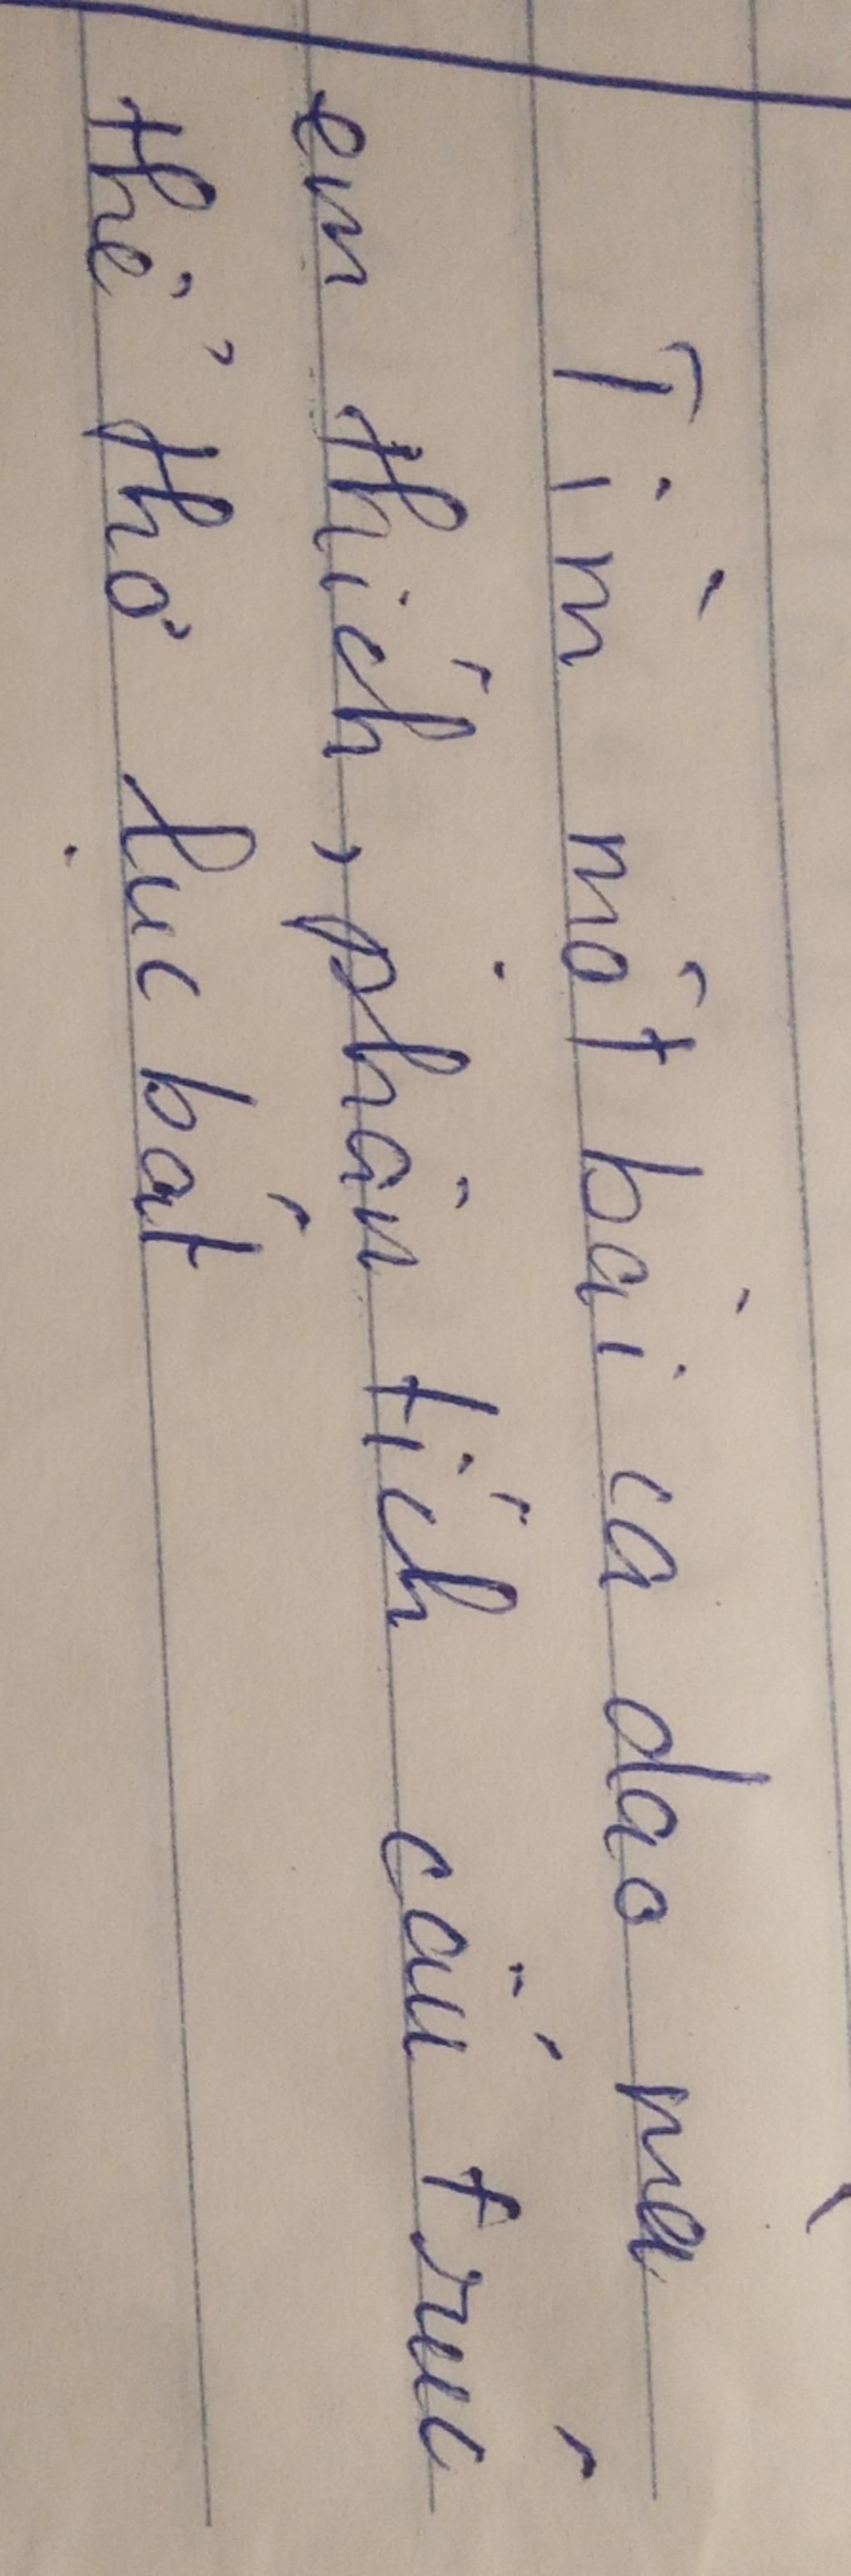 Tìm một bài ca dao mà
em thích, phân tích cấu trúc
thể thơ lục bát